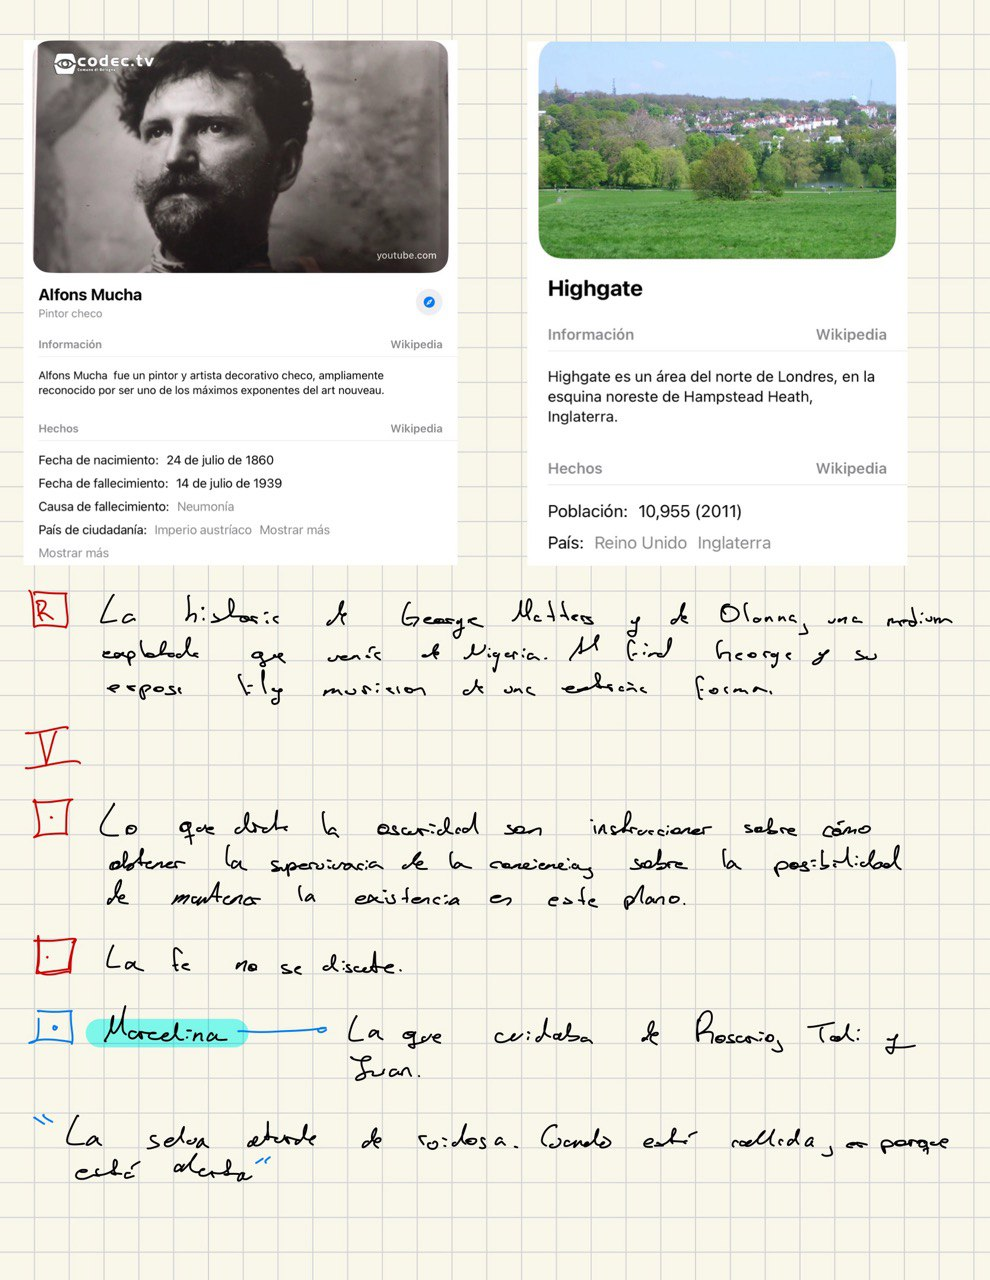 codec.tv
Comune di Bologna
youtube.com
Alfons Mucha
Pintor checo
Información Wikipedia
Alfons Mucha fue un pintor y artista decorativo checo, ampliamente
reconocido por ser uno de los máximos exponentes del art nouveau.
Hechos Wikipedia
Fecha de nacimiento: 24 de julio de 1860
Fecha de fallecimiento: 14 de julio de 1939
Causa de fallecimiento: Neumonía
País de ciudadanía: Imperio austríaco Mostrar más
Mostrar más
Highgate
Información Wikipedia
Highgate es un área del norte de Londres, en la
esquina noreste de Hampstead Heath,
Inglaterra.
Hechos Wikipedia
Población: 10,955 (2011)
País: Reino Unido Inglaterra
R La historia de George y de Olanna, una medium
explotada que venía de Nigeria. Al final George y su
esposa murieron de una extraña forma.
V
Lo que dicta la oscuridad son instrucciones sobre cómo
obtener la supervivacia de la conciencia, sobre la posibilidad
de mantener la existencia en este plano.
La fe no se discute.
Marcelina La que cuidaba de Rosario, Tali y
Juan.
"La selva aturde de ruidosa. Cuando está callada, es porque
está alerta"